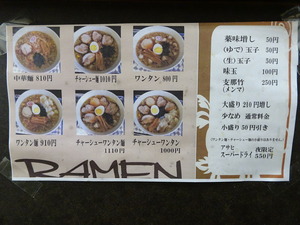 中華麺 810円
チャーシュー麺 1010円
ワンタン 800円
ワンタン麺 910円
チャーシューワンタン麺
1110円
チャーシューワンタン
1000円
RAMEN
薬味増し 50円
(ゆで)玉子 50円
(生)玉子 50円
味玉 100円
支那竹 250円
(メンマ)
大盛り 210円増し
少なめ 通常料金
小盛り 50円引き
アサヒ 夜限定
スーパードライ 550円